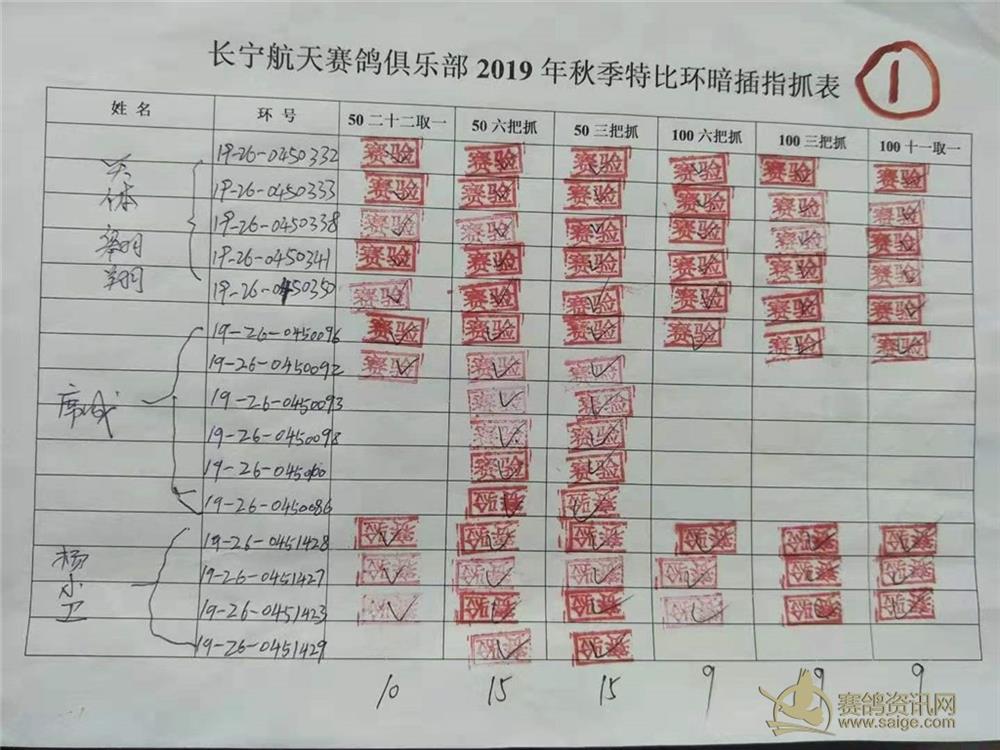 长宁航天赛鸽俱乐部 2019 年秋季特比环暗插指抓表 1
姓名 环号 50 二十二取一 50 六把抓 50 三把抓 100 六把抓 100 三把抓 100 十一取一
19-26-0450332 赛验 赛验 赛验 赛验 赛验 赛验
19-26-0450333 赛验 赛验 赛验 赛验 赛验 赛验
19-26-0450338 赛验 赛验 赛验 赛验 赛验 赛验
19-26-0450341 赛验 赛验 赛验 赛验 赛验 赛验
19-26-0450350 赛验 赛验 赛验 赛验 赛验 赛验
19-26-0450096 赛验 赛验 赛验 赛验 赛验 赛验
19-26-0450092 赛验 赛验 赛验
19-26-0450093 赛验 赛验
19-26-0450098 赛验 赛验
赛验 赛验
19-26-0450086 赛验 赛验
杨小卫 19-26-0451428 赛验 赛验 赛验 赛验 赛验 赛验
19-26-0451427 赛验 赛验 赛验 赛验 赛验 赛验
19-26-0451423 赛验 赛验 赛验 赛验 赛验 赛验
19-26-0451429 赛验 赛验
10 15 15 9 9 9
赛鸽资讯网
www.saige.com